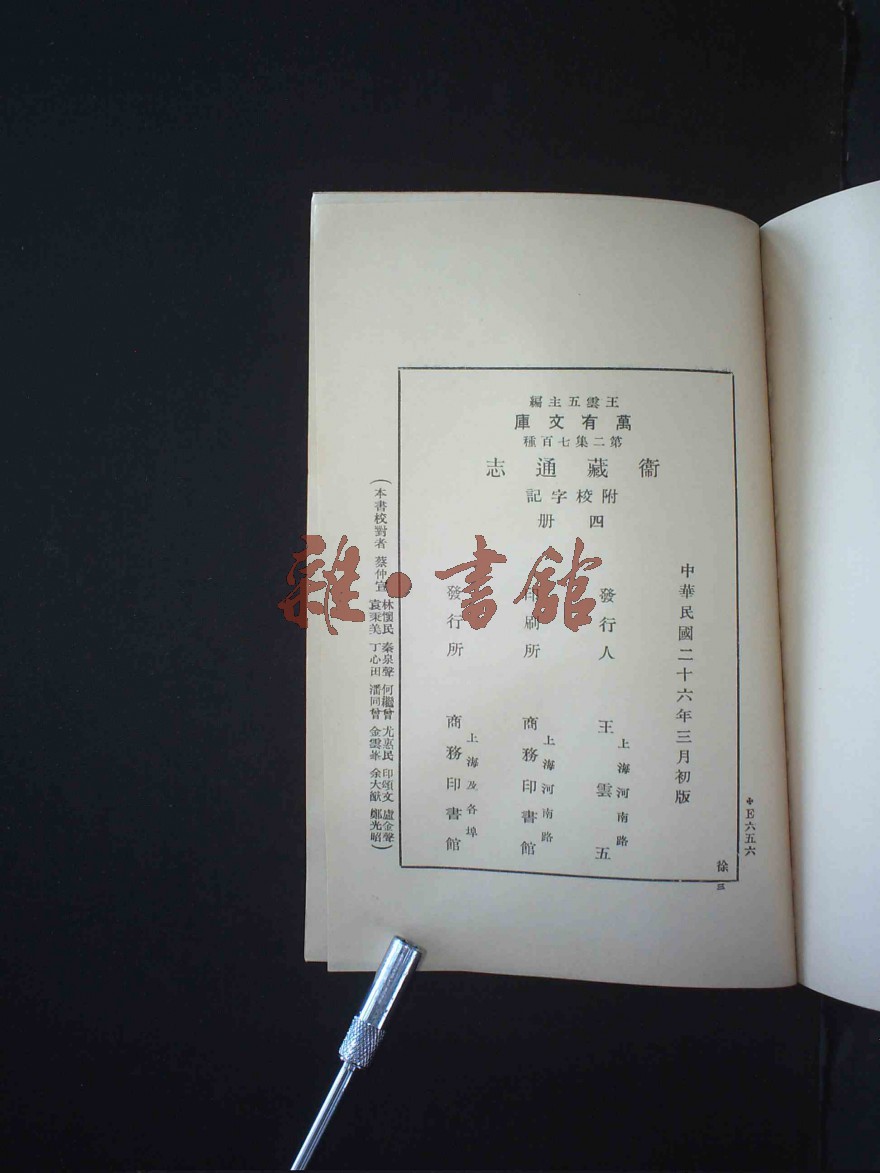 王雲五主編
萬有文庫
第二集七百種
衞藏通志
附校字記
四册
中華民國二十六年三月初版
發行人 王雲五
上海河南路
印刷所 商務印書館
上海河南路
發行所 商務印書館
上海及各埠
(本書校對者 蔡仲宣
林懷民 秦泉聲 何繼曾 尤惠民 印頌文 盧金聲
袁秉美 丁心田 潘同曾 金雲 余大猷 鄭光昭)
E六五六
徐
雜·書館